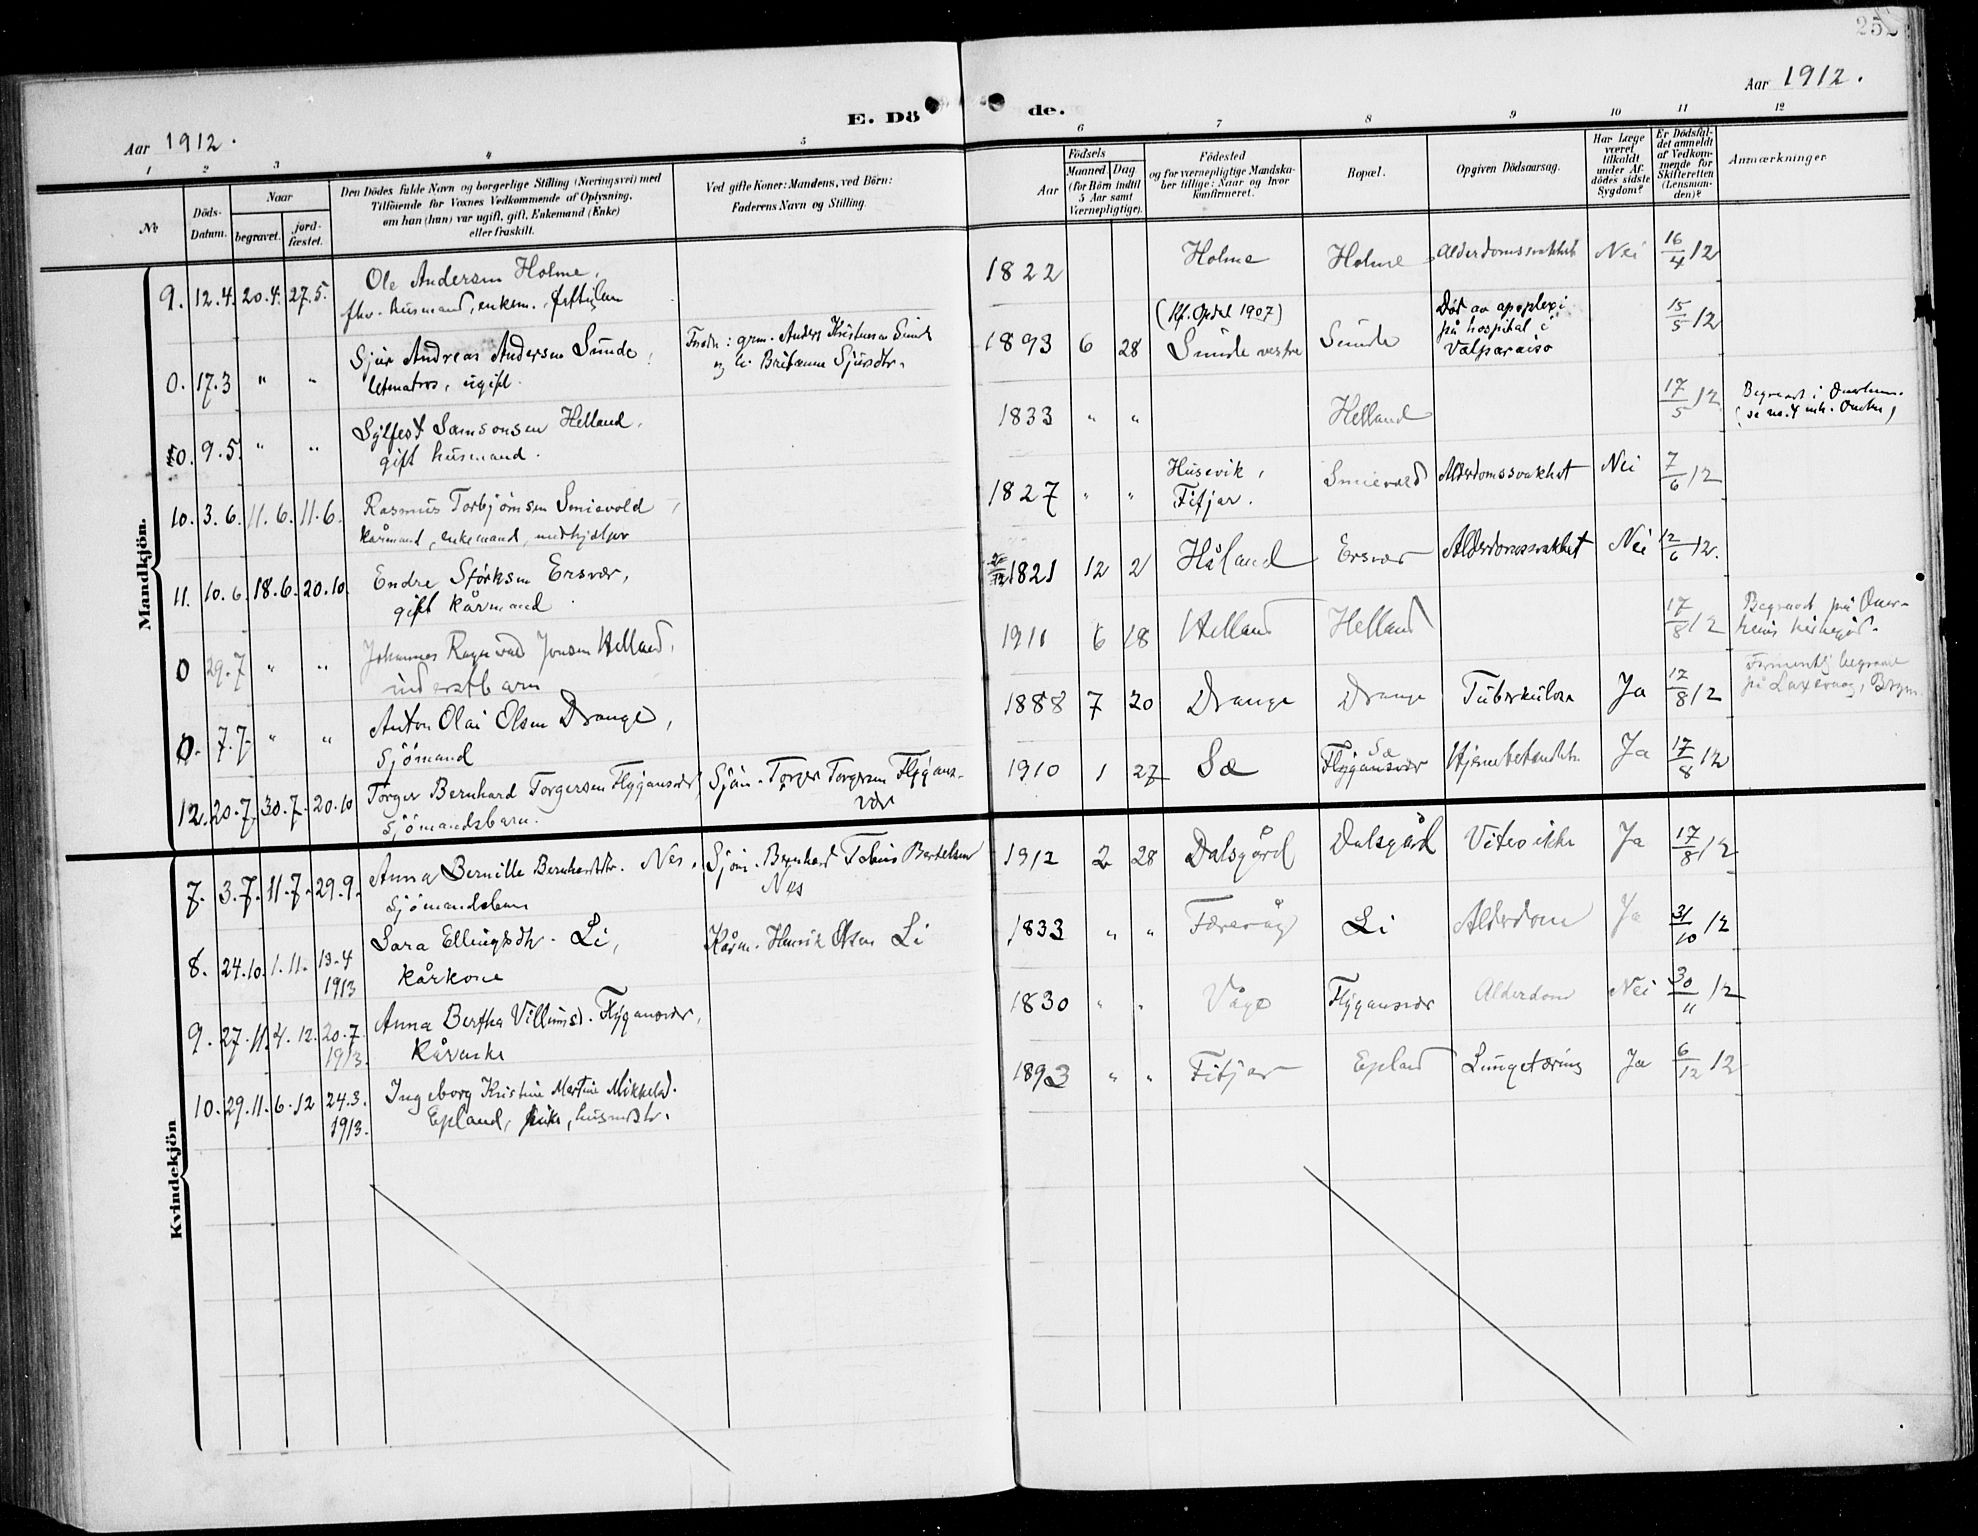 252
Aar 1912.
E. Dö de.
Aar 1912.
1 2 3 4 5 6 7 8 9 10 11 12
No
Döds-
Datum.
Naar
begravet.
jord-
fæstet.
Den Dödes fulde Navn og borgerlige Stilling (Næringsvei) med
Tilföiende for Voxnes Vedkommende af Oplysning,
om han (hun) var ugift, gift, Enkemand (Enke)
eller fraskilt.
Ved gifte Koner: Mandens, ved Börn:
Faderens Navn og Stilling.
Födsels
Aar
Maaned. Dag
(for Börn indtil
5 Aar samt
Værnepligtige).
Födested
og for værnepligtige Mandska-
ber tillige: Naar og hvor
konfirmeret.
Bopæl.
Opgiven Dödsaarsag.
Har Læge
været
tilkaldt
under Af-
dödes sidste
Sygdom?
Er Dödsfal-
det anmeldt
af Vedkom-
mende for
Skifteretten
(Lensman-
den)?
Anmærkninger
Mandkjön.
9. 12.4. 20.4. 27.5. Ole Andersen Holme, 1822 Holme Holme Alderdomssvakhet Nei 16/4 12
fhv. husmand, enkem.
0. 17.3 " " Sjur Andreas Andersen Sunde, 1893 6 28 (Kf. Opdal 1907) Sunde 15/5 12
letmatros, ugift.
Anders Kristensen Sunde
Sunde vestre
Død av apoplexi
på hospital i
Valparaiso
10. 9.5. " " Sylfest Samsonsen Helland, 1833 " " Helland 17/5 12
gift husmand.
Begravet i
10. 3.6. 11.6. 11.6. Rasmus Torbjørnsen Smievold, 1827 " " Husevik, Smievold Alderdomssvakhet Nei 7/6 12
kårmand, enkemand,
Fitjar.
11. 10.6. 18.6. 20.10. Endre Størksen Ersvær, 1821 12 2 Håland Ersvær Alderdomssvakhet Nei 12/6 12.
gift kårmand
0 29.7 " " Johannes Ragnvald Jonsen Helland, 1911 6 18 Helland Helland 17/8 12
Begravet på Øner-
heims kirkegård.
0. 7.7. " " Anton Olai Olsen Drange, 1888 7 20 Drange Drange Tuberkulose Ja 17/8 12
sjömand
Formentlig begravet
på Laxevaag, Bergen
12. 20.7. 30.7. 20.10 Torger Bernhard Torgersen Flygansvær, Sjöm. Torger Torgersen Flygans- 1910 1 27 Sæ Flygansvær Ja 17/8 12
sjömandsbarn. vær
Sæ
Kvindekjön
7. 3.7. 11.7. 29.9. Anna Bernille Bernhardsdtr. Nes, Sjöm. Bernhard Tobias Bertelsen 1912 2 28 Dalsgård Dalsgård Vites ikke Ja 17/8 12
sjömandsbarn Nes
8. 24.10. 1.11. 13.4 Sara Ellingsdtr. Li, Kårm. Henrik Olsen Li 1833 " " Færevåg Li Alderdom Ja 31/10 12
1913 kårkone
9. 27.11. 4.12. 20.7. Anna Bertha Villumsd. Flygansvær, 1830 " " Våge Flygansvær Alderdom Nei 30/11 12
1913. kårenke
10. 29.11. 6.12 24.3. Ingeborg Kristine Martine Mikkelsd. 1893 " " Fitjar Epland Lungetæring Ja 6/12 12
1913. Epland, pike, husmdtr.